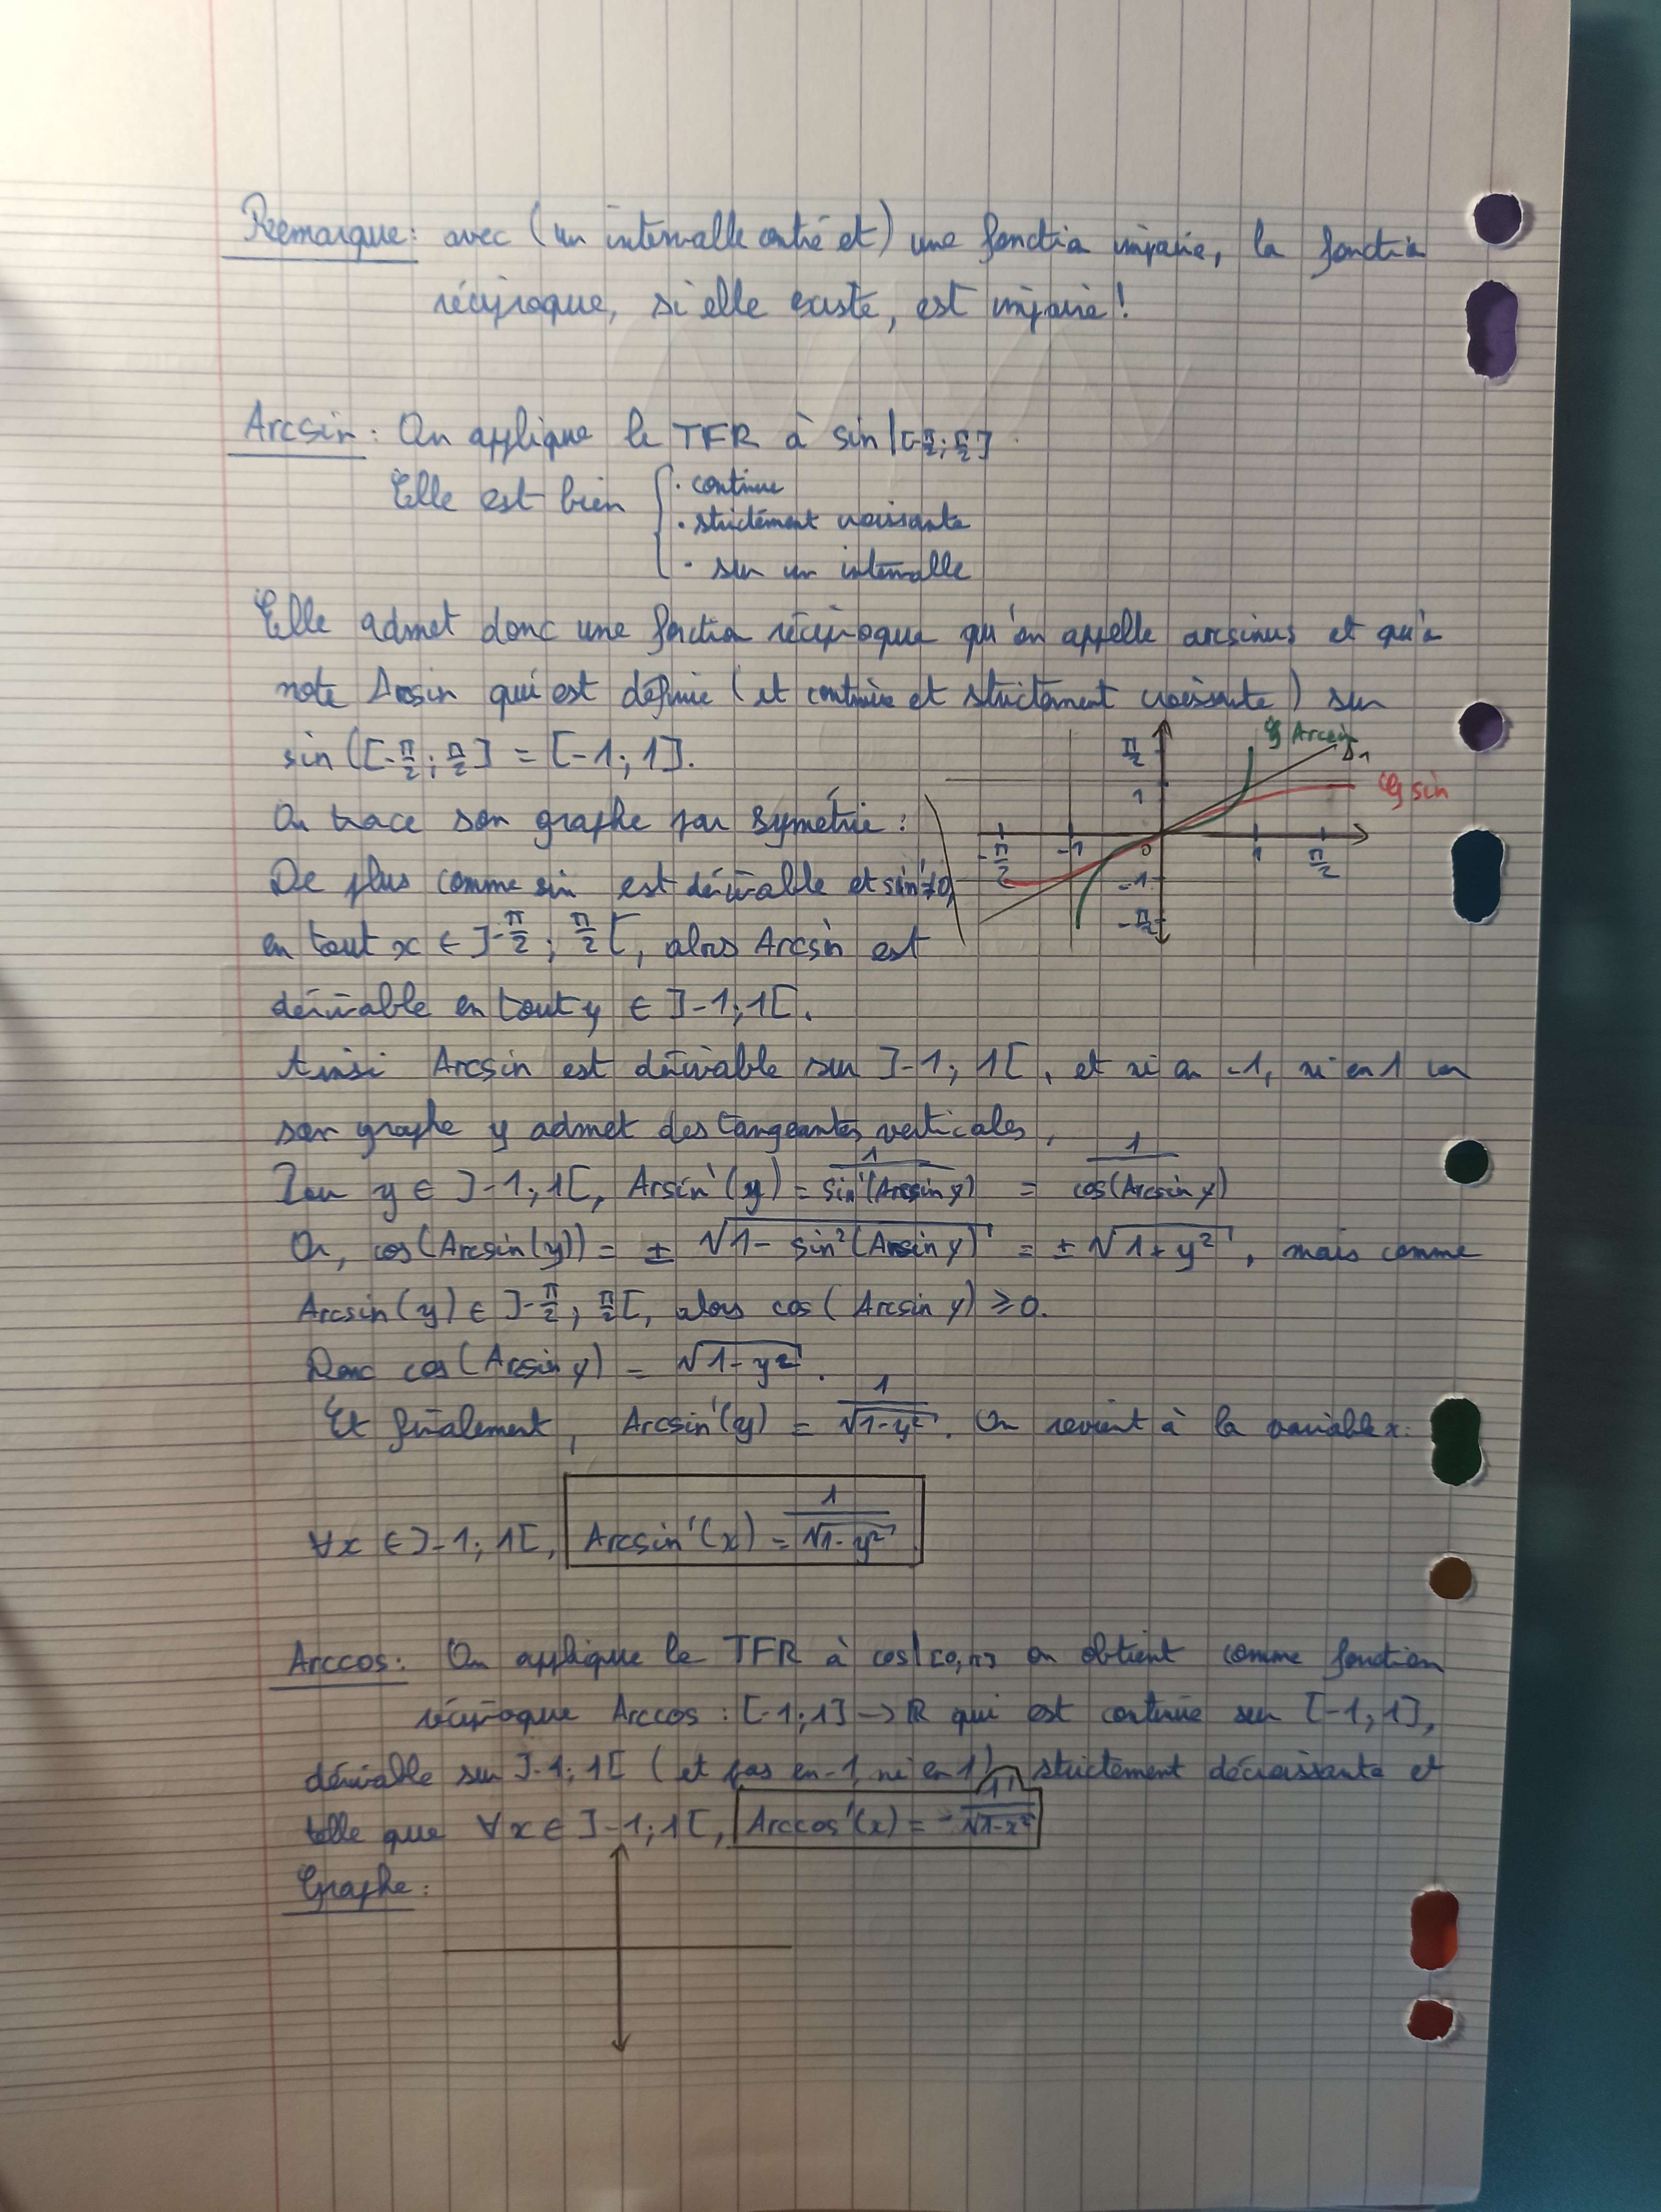 Remarque : avec (un intervalle centré et) une fonction impaire, la fonction
réciproque, si elle existe, est impaire !
Arcsin : On applique le TFR à sin|[-π/2 ; π/2]
Elle est bien { · continue
· strictement croissante
· sur un intervalle
Elle admet donc une fonction réciproque qu'on appelle arcsinus et qu'on
note Arcsin qui est définie (et continue et strictement croissante) sur
sin ([-π/2 ; π/2] = [-1 ; 1].
On trace son graphe par symétrie :
π/2
1
-π/2 -1 0 1 π/2
-1
-π/2
𝒞 Arcsin
Δ1
𝒞 sin
De plus comme sin est dérivable et sin' ≠ 0
en tout x ∈ ]-π/2 ; π/2 [, alors Arcsin est
dérivable en tout y ∈ ]-1 ; 1[.
Ainsi Arcsin est dérivable sur ]-1 ; 1[, et ni en -1, ni en 1 car
son graphe y admet des tangeantes verticales.
Pour y ∈ ]-1 ; 1[, Arsin'(y) = 1/sin'(Arcsin y) = 1/cos(Arcsin y)
Or, cos(Arcsin(y)) = ± √(1 - sin²(Arcsin y)) = ± √(1 + y²), mais comme
Arcsin(y) ∈ ]-π/2 ; π/2[, alors cos( Arcsin y) ⩾ 0.
Donc cos(Arcsin y) = √(1 - y²).
Et finalement, Arcsin'(y) = 1/√(1 - y²). On revient à la variable x :
∀x ∈ ]-1 ; 1[, Arcsin'(x) = 1/√(1 - y²)
Arccos : On applique le TFR à cos|[0, π] on obtient comme fonction
réciproque Arccos : [-1 ; 1] → ℝ qui est continue sur [-1 ; 1],
dérivable sur ]-1 ; 1[ (et pas en -1, ni en 1) strictement décroissante et
telle que ∀x ∈ ]-1 ; 1[, Arccos'(x) = - 1/√(1 - x²)
Graphe :